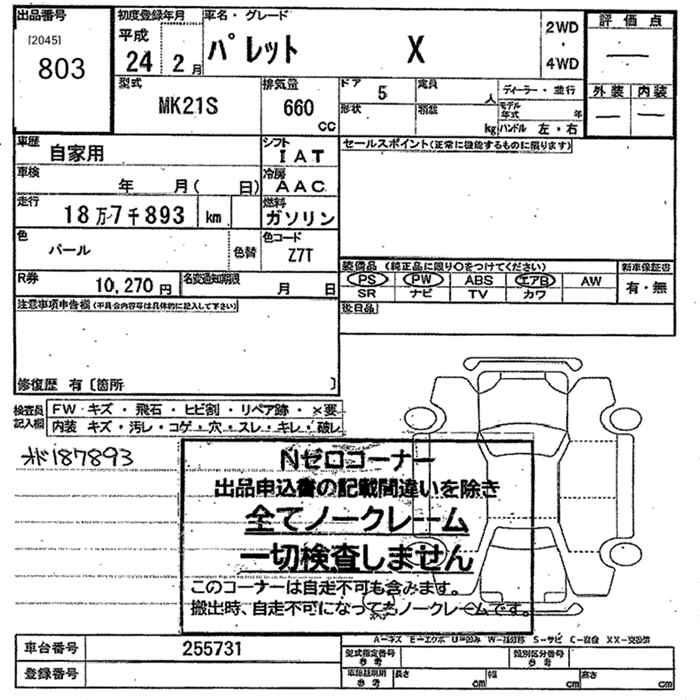 出品番号
[2045]
803
初度登録年月
平成
24 2 月
車名・グレード
パレット X
2WD
・
4WD
評価点
―
外装 内装
― ―
型式
MK21S
排気量
660
cc
ドア
5
形状
定員
人
積載
kg
ディーラー・並行
モデル年式 年
ハンドル 左・右
車歴
自家用
シフト
IAT
車検
年 月( 日)
冷房
AAC
走行
18万7千893 km
燃料
ガソリン
色
パール
色替
色コード
Z7T
R券
10,270円
名変通知期限
月 日
セールスポイント(正常に機能するものに限ります)
装備品 (純正品に限り〇をつけてください)
PS PW ABS エアB AW
SR ナビ TV カワ
新車保証書
有・無
後日品
注意事項申告欄(不具合内容等は具体的に記入して下さい)
修復歴 有〔箇所 〕
検査員記入欄
FW キズ・飛石・ヒビ割・リペア跡・×要
内装 キズ・汚レ・コゲ・穴・スレ・キレ・破レ
187893
Nゼロコーナー
出品申込書の記載間違いを除き
全てノークレーム
一切検査しません
このコーナーは自走不可も含みます。
搬出時、自走不可になってもノークレームです。
A―キズ E―エクボ U―凹み W―補修跡 S―サビ C―腐食 XX―交換済
車台番号
255731
登録番号
型式指定番号
参考
類別区分番号
参考
長さ cm
幅 cm
高さ cm